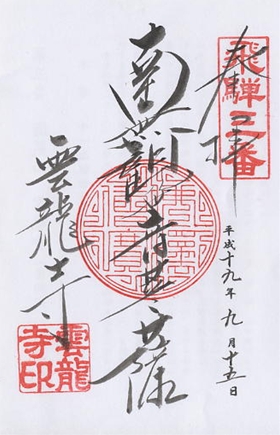 奉拝
飛騨三番
平成十九年九月十五日
南無観世音菩薩
雲龍寺
雲龍
寺印